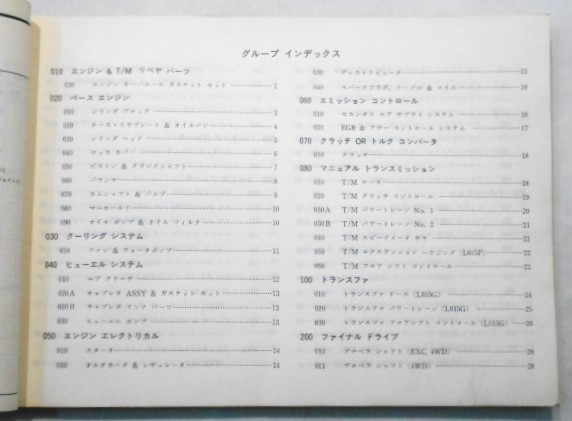 グループ インデックス
010 エンジン & T/M リペヤ パーツ
030 エンジン オーバホール ガスケット セット 2
020 ベース エンジン
010 シリンダ ブロック 3
020 ケース・リヤプレート & オイルパン 4
030 シリンダ ヘッド 5
040 ロッカ カバー 6
050 ピストン & クランクシャフト 7
060 バランサ 8
070 カムシャフト & バルブ 9
080 マニホールド 10
090 オイル ポンプ & オイル フィルタ 10
030 クーリング システム
010 ファン & ウォータポンプ 11
040 ヒューエル システム
010 エア クリーナ 12
020A キャブレタ ASSY & ガスケット セット 13
020B キャブレタ インナ パーツ 13
030 ヒューエル ポンプ 13
050 エンジン エレクトリカル
010 スタータ 14
020 オルタネータ & レギュレータ 14
030 ディストリビュータ 15
040 スパークプラグ, ケーブル & コイル 16
060 エミッション コントロール
010 セカンダリ エア サプライ システム 16
020 EGR & アザー コントロール システム 17
070 クラッチ OR トルク コンバータ
010 クラッチ 18
080 マニュアル トランスミッション
010 T/M ケース 18
020 T/M クラッチ コントロール 19
030A T/M パワートレーン No. 1 20
030B T/M パワートレーン No. 2 21
040 T/M スピードメータ ギヤ 21
050 T/M エクステンション ハウジング (L015P) 22
060 T/M フロア シフト コントロール 22
100 トランスファ
010 トランスファ ケース (L015G) 24
020 トランスファ パワートレーン (L015G) 25
030 トランスファ フロアシフト コントロール (L015G) 26
200 ファイナル ドライブ
010 プロペラ シャフト (EXC. 4WD) 28
011 プロペラ シャフト (4WD) 28